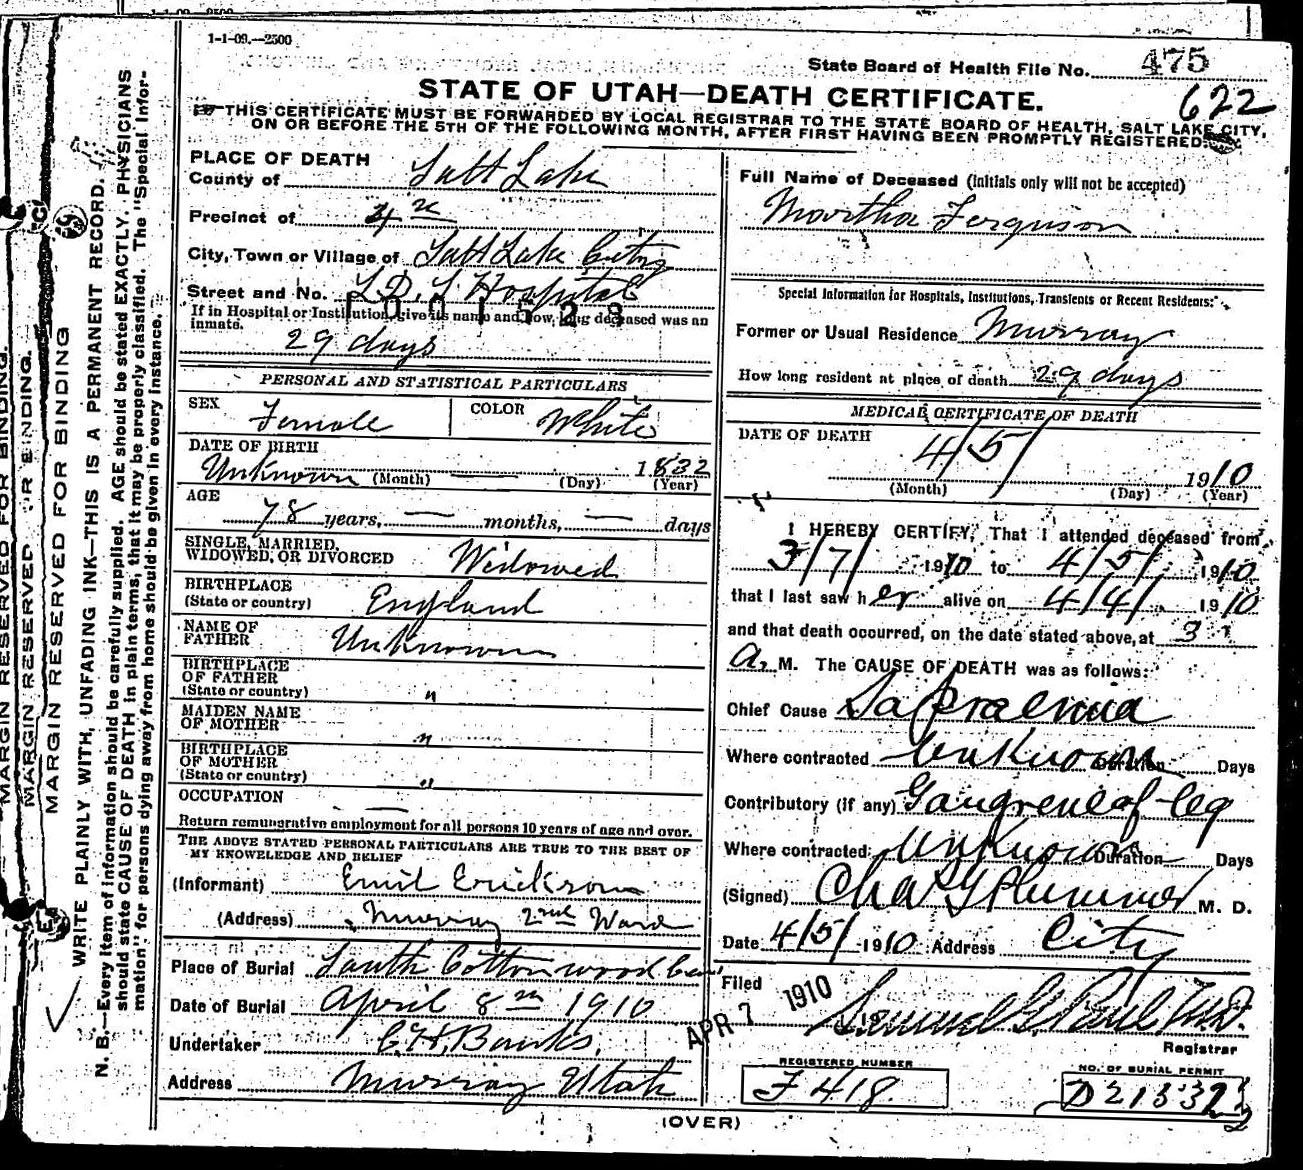 1-1-09.—2500
State Board of Health File No. 475
622
STATE OF UTAH—DEATH CERTIFICATE.
THIS CERTIFICATE MUST BE FORWARDED BY LOCAL REGISTRAR TO THE STATE BOARD OF HEALTH, SALT LAKE CITY,
ON OR BEFORE THE 5TH OF THE FOLLOWING MONTH, AFTER FIRST HAVING BEEN PROMPTLY REGISTERED.
PLACE OF DEATH
County of Salt Lake
Precinct of 4th
City, Town or Village of Salt Lake City
Street and No. L.D.S Hospital
If in Hospital or Institution, give its name and how long deceased was an
inmate.
29 days
PERSONAL AND STATISTICAL PARTICULARS
SEX Female COLOR White
DATE OF BIRTH
Unknown (Month) — (Day) 1832 (Year)
AGE
78 years, — months, — days
SINGLE, MARRIED,
WIDOWED, OR DIVORCED Widowed
BIRTHPLACE
(State or country) England
NAME OF
FATHER Unknown
BIRTHPLACE
OF FATHER
(State or country) "
MAIDEN NAME
OF MOTHER "
BIRTHPLACE
OF MOTHER
(State or country) "
OCCUPATION —
Return remunerative employment for all persons 10 years of age and over.
THE ABOVE STATED PERSONAL PARTICULARS ARE TRUE TO THE BEST OF
MY KNOWLEDGE AND BELIEF
(Informant) Emil Erickson
(Address) Murray 2nd Ward
Place of Burial South Cottonwood Cem
Date of Burial April 8th 1910
Undertaker C.H. Banks.
Address Murray Utah
Full Name of Deceased (Initials only will not be accepted)
Martha Ferguson
Special Information for Hospitals, Institutions, Transients or Recent Residents:
Former or Usual Residence Murray
How long resident at place of death 29 days
MEDICAL CERTIFICATE OF DEATH
DATE OF DEATH
4/5/ 1910
(Month) (Day) (Year)
I HEREBY CERTIFY, That I attended deceased from
3/7/ 1910 to 4/5/, 1910
that I last saw h er alive on 4/4/ 1910
and that death occurred, on the date stated above, at 3
a. M. The CAUSE OF DEATH was as follows:
Chief Cause Sapraemia
Where contracted Unknown Duration Days
Contributory (if any) Gangrene of leg
Where contracted Unknown Duration Days
(Signed) Chas G Plummer M. D.
Date 4/5/ 1910 Address City
Filed APR 7 1910
Samuel G. Paul M.D.
Registrar
REGISTERED NUMBER
F 418.
NO. OF BURIAL PERMIT
(OVER)
MARGIN RESERVED FOR BINDING.
MARGIN RESERVED FOR BINDING.
MARGIN RESERVED FOR BINDING
WRITE PLAINLY WITH, UNFADING INK—THIS IS A PERMANENT RECORD.
N. B.—Every item of information should be carefully supplied. AGE should be stated EXACTLY. PHYSICIANS
should state CAUSE OF DEATH in plain terms, that it may be properly classified. The "Special Infor-
mation" for persons dying away from home should be given in every instance.